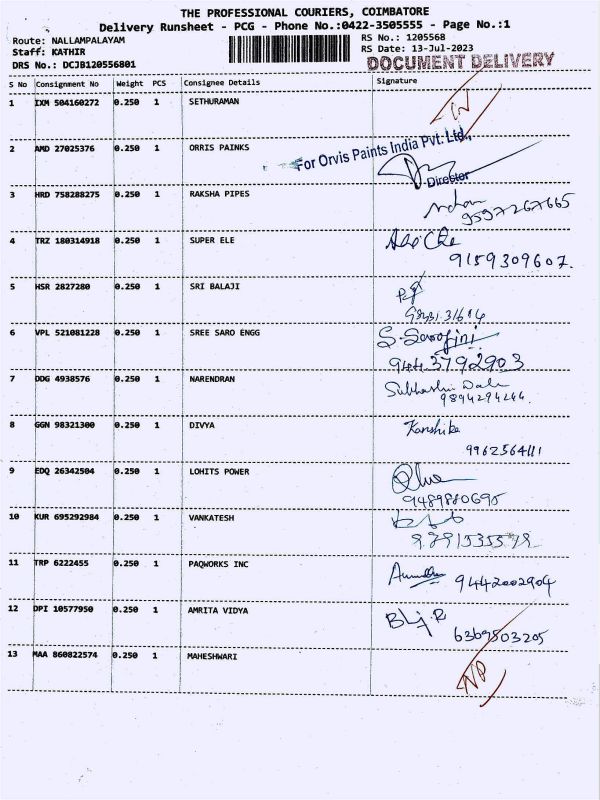 THE PROFESSIONAL COURIERS, COIMBATORE
Delivery Runsheet - PCG - Phone No.:0422-3505555 - Page No.:1
Route: NALLAMPALAYAM
RS No.: 1205568
Staff: KATHIR
RS Date: 13-Jul-2023
DRS No.: DCJB120556801
DOCUMENT DELIVERY
S No Consignment No Weight PCS Consignee Details Signature
1 IXM 504160272 0.250 1 SETHURAMAN
2 AMD 27025376 0.250 1 ORRIS PAINKS
For Orvis Paints India Pvt. Ltd.,
Director
3 HRD 758288275 0.250 1 RAKSHA PIPES
9597267665
4 TRZ 180314918 0.250 1 SUPER ELE
9159309607.
5 HSR 2827280 0.250 1 SRI BALAJI
6 VPL 521081228 0.250 1 SREE SARO ENGG S-Sarojini
9443792903
7 DDG 4938576 0.250 1 NARENDRAN
9894294244.
8 GGN 98321300 0.250 1 DIVYA Kanshika
9962564111
9 EDQ 26342504 0.250 1 LOHITS POWER
9489880695
10 KUR 695292984 0.250 1 VANKATESH
11 TRP 6222455 0.250 1 PAQWORKS INC
9442002904
12 DPI 10577950 0.250 1 AMRITA VIDYA
6369503205
13 MAA 860822574 0.250 1 MAHESHWARI
NP